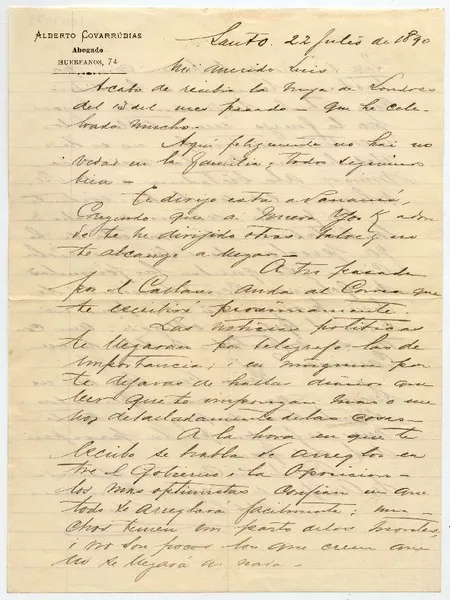 ALBERTO COVARRÚBIAS
Abogado
HUERFANOS, 74
Santo. 22 Julio de 1890
Mi querido Luis:
Acabo de recibir la tuya de Londres
del 13 del mes pasado que he cele-
brado mucho.
Aquí felizmente no hai no
vedad en la familia; todos seguimos
bien —
Te dirijo esta a Panamá,
creyendo que a Nueva York adon
de te he dirijido otras, talvez no
te alcance a llegar —
A tu pasada
por el Callao, anda al Correo que
te escribiré próximamente.
Las noticias políticas
te llegarán por telégrafo las de
importancia; i en ninguna par
te dejaras de hallar diarios
que te impongan mas o me
nos detalladamente de las cosas —
A la hora en que te
escribo se habla de arreglos en
tre el Gobierno i la Oposicion —
los mas optimistas confian en que
todo se arreglará facilmente; mu-
chos temen un parto de los montes,
i no son pocos los que creen que
no se llegará a nada —